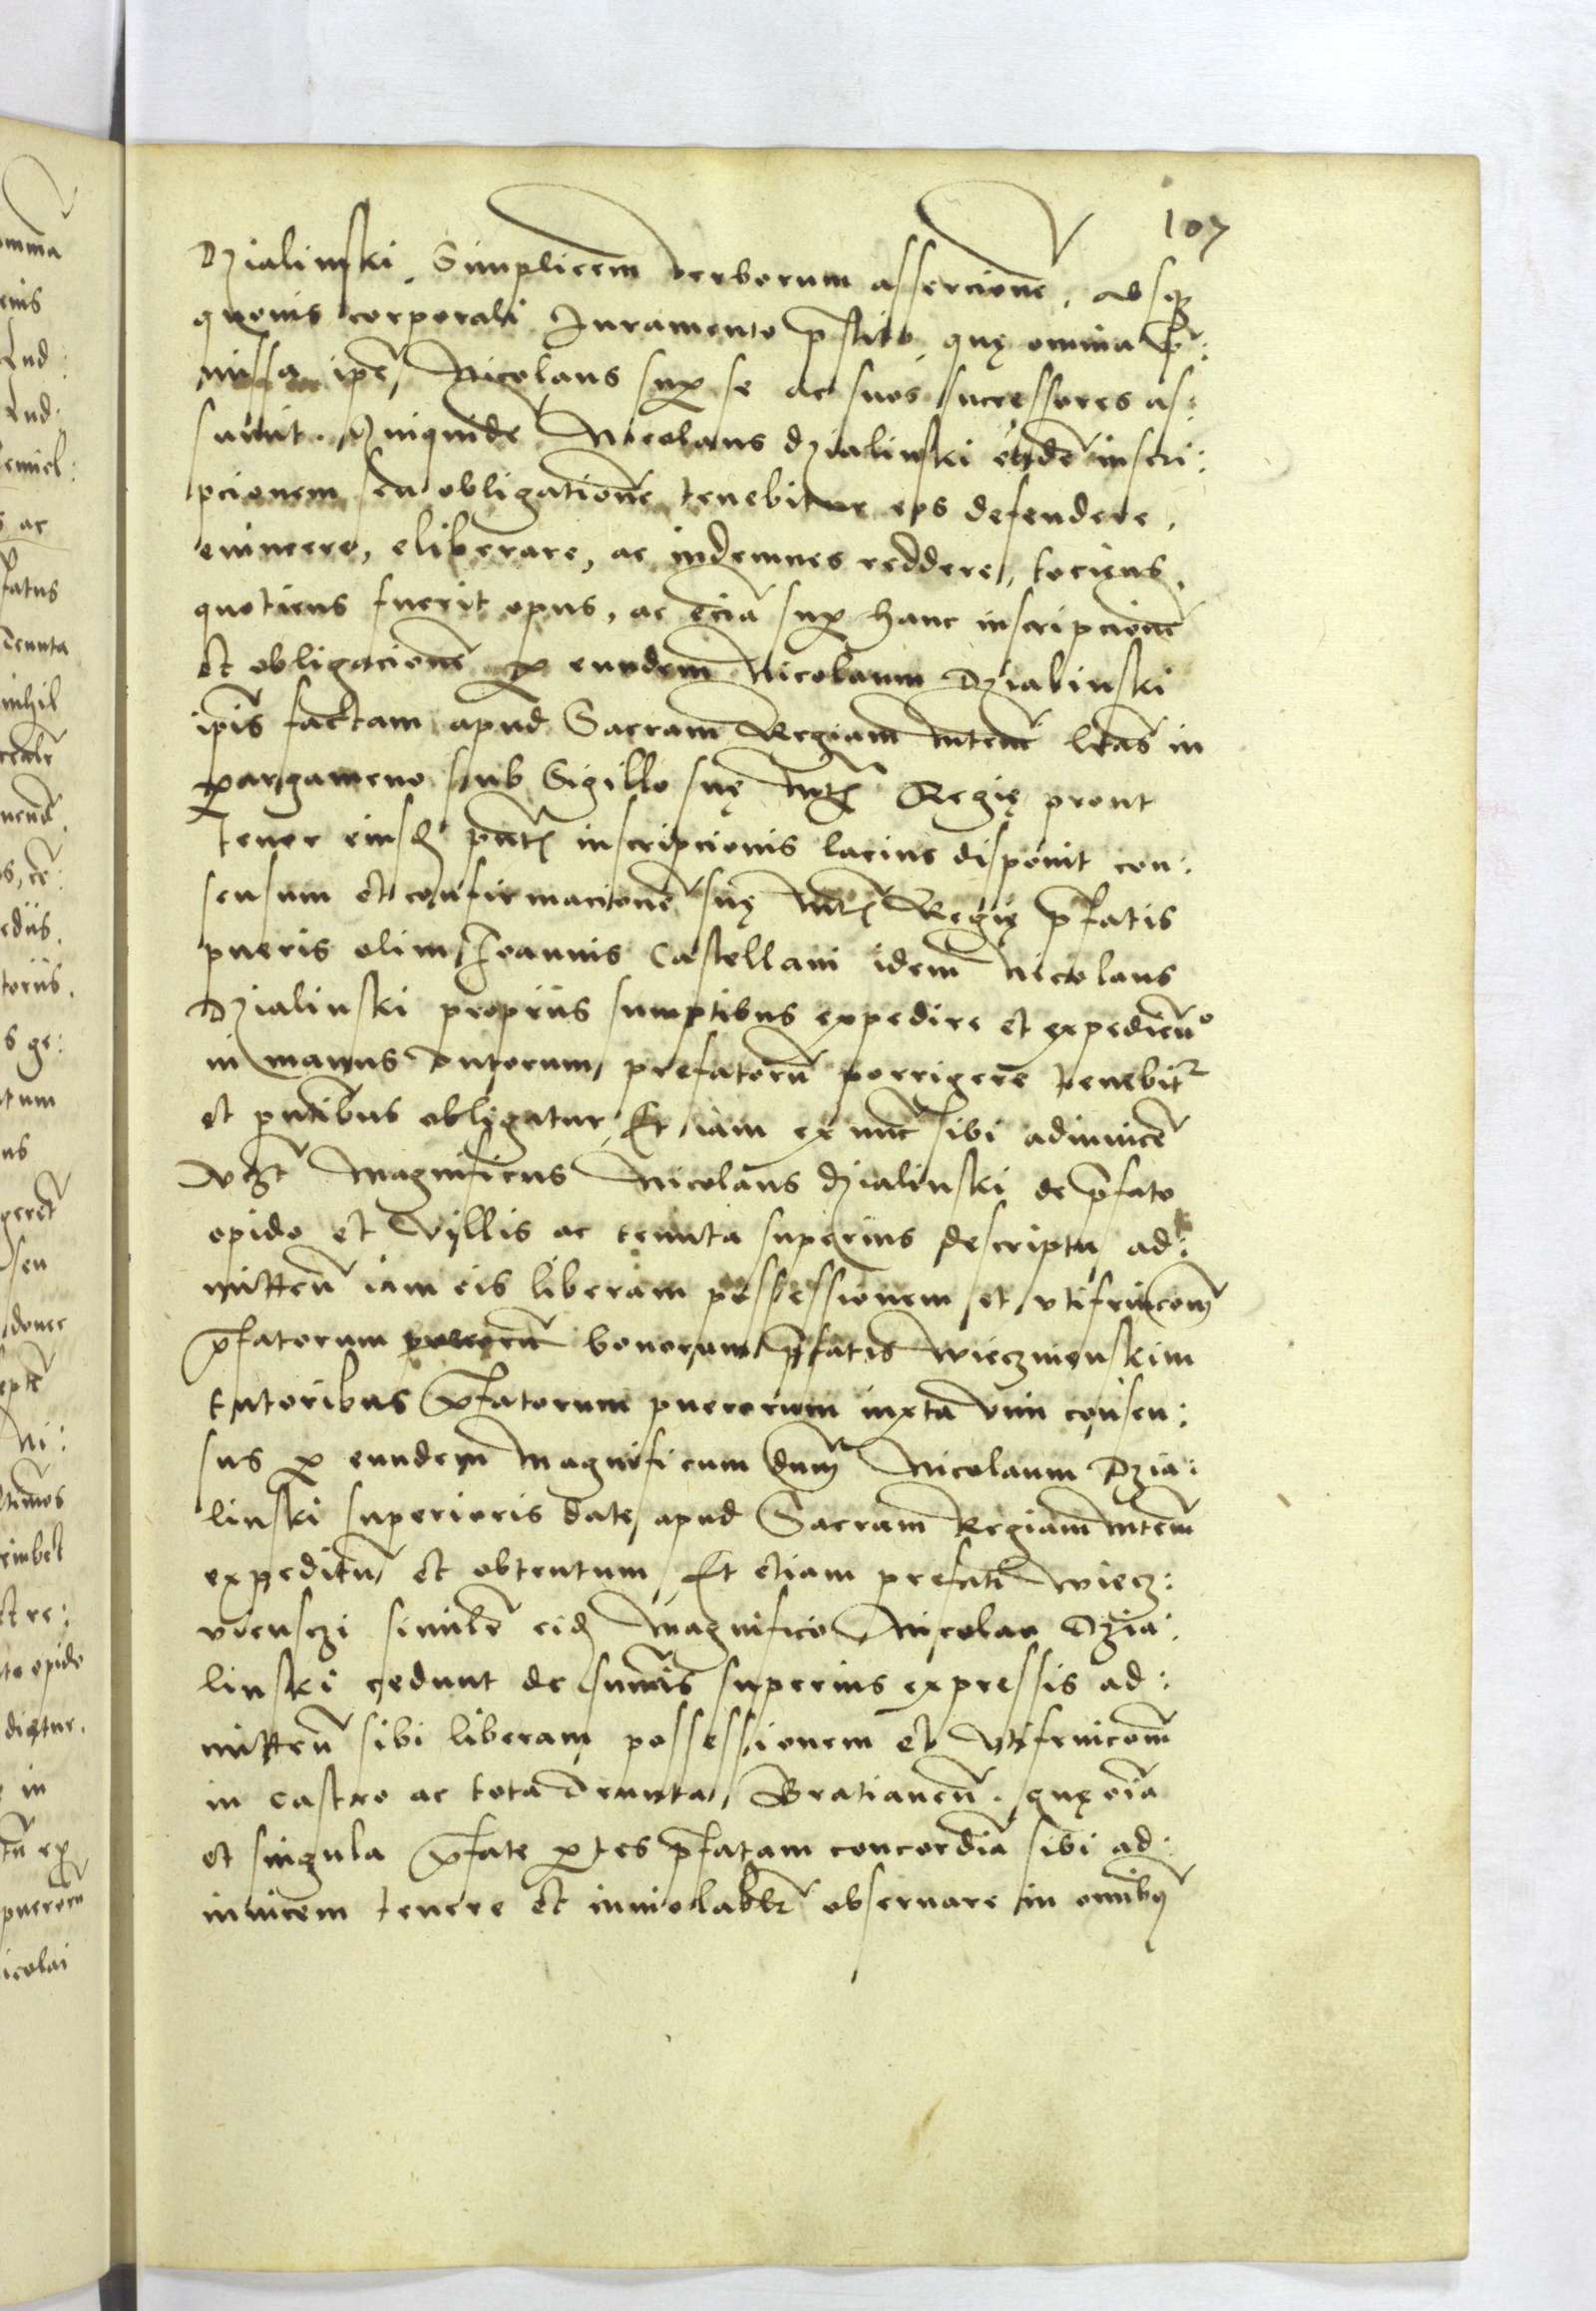 107
Dzialinski Simplicem verborum assercionē, absqȝ
quouis corporali Iuramento p̄stito, quę omnia p̄:
missa ip̄e Nicolaus sup se ac suos successores as:
sumit. Nicolaus dzialinski inscri:
pcionem seu obligationē tenebitur eos defendere,
euincere, eliberare, ac indemnes reddere, tociens,
quotiens fuerit opus, ac eciā sup hanc inscripcionē
et obligacionē p eundem Nicolaum Dzialinski
ip̄is factam apud Sacram Regiam Mtem lr̄as in
pargameno sub Sigillo suę Mtis Regię prout
tenor eiusd̄ pn̄tis inscripcionis lacius disponit con:
sensum et confirmacionē suę Mtis Regię p̄fatis
pueris olim Ioannis Castellani idem Nicolaus
Dzialinski propriis sumptibus expedire et expedicū
in manus tutorum prefatorū porrigere tenebitr
et pn̄tibus obligatur, Et iam ex nūc sibi adinuicē
Magnificus Nicolaus dzialinski de p̄fato
opido et Villis ac tenuta superius descripta ad:
mitteñ iam eis liberam possessionem et vtifruicom̄
p̄fatorum bonorum p̄fatis Wieczwienskim
tutoribus p̄fatorum puerorum iuxta vim consen:
sus p eundem Magnificum dnm̄ Nicolaum Dzia:
linski superioris date apud Sacram Regiam Mtem
expeditū et obtentum, Et etiam prefati Wiecz:
vienszi similr̄ eid̄ Magnifico Nicolao Dzia:
linski cedunt de summis superius expressis ad:
mitteñ sibi liberam possessionem et vtifruicom̄
in castro ac tota tenuta Bratianeñ. quę oīa
et singula p̄fate ptes p̄fatam concordiā sibi ad:
inuicem tenere et inuiolabilr̄ obseruare in omnibȝ